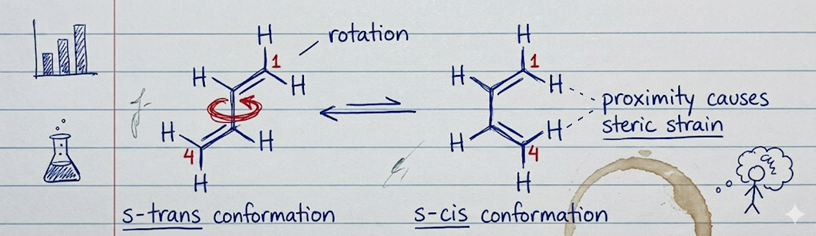 H
1
rotation
H
H
H
H
4
H
s-trans conformation
H
1
H
H
H
H
4
H
proximity causes
steric strain
s-cis conformation